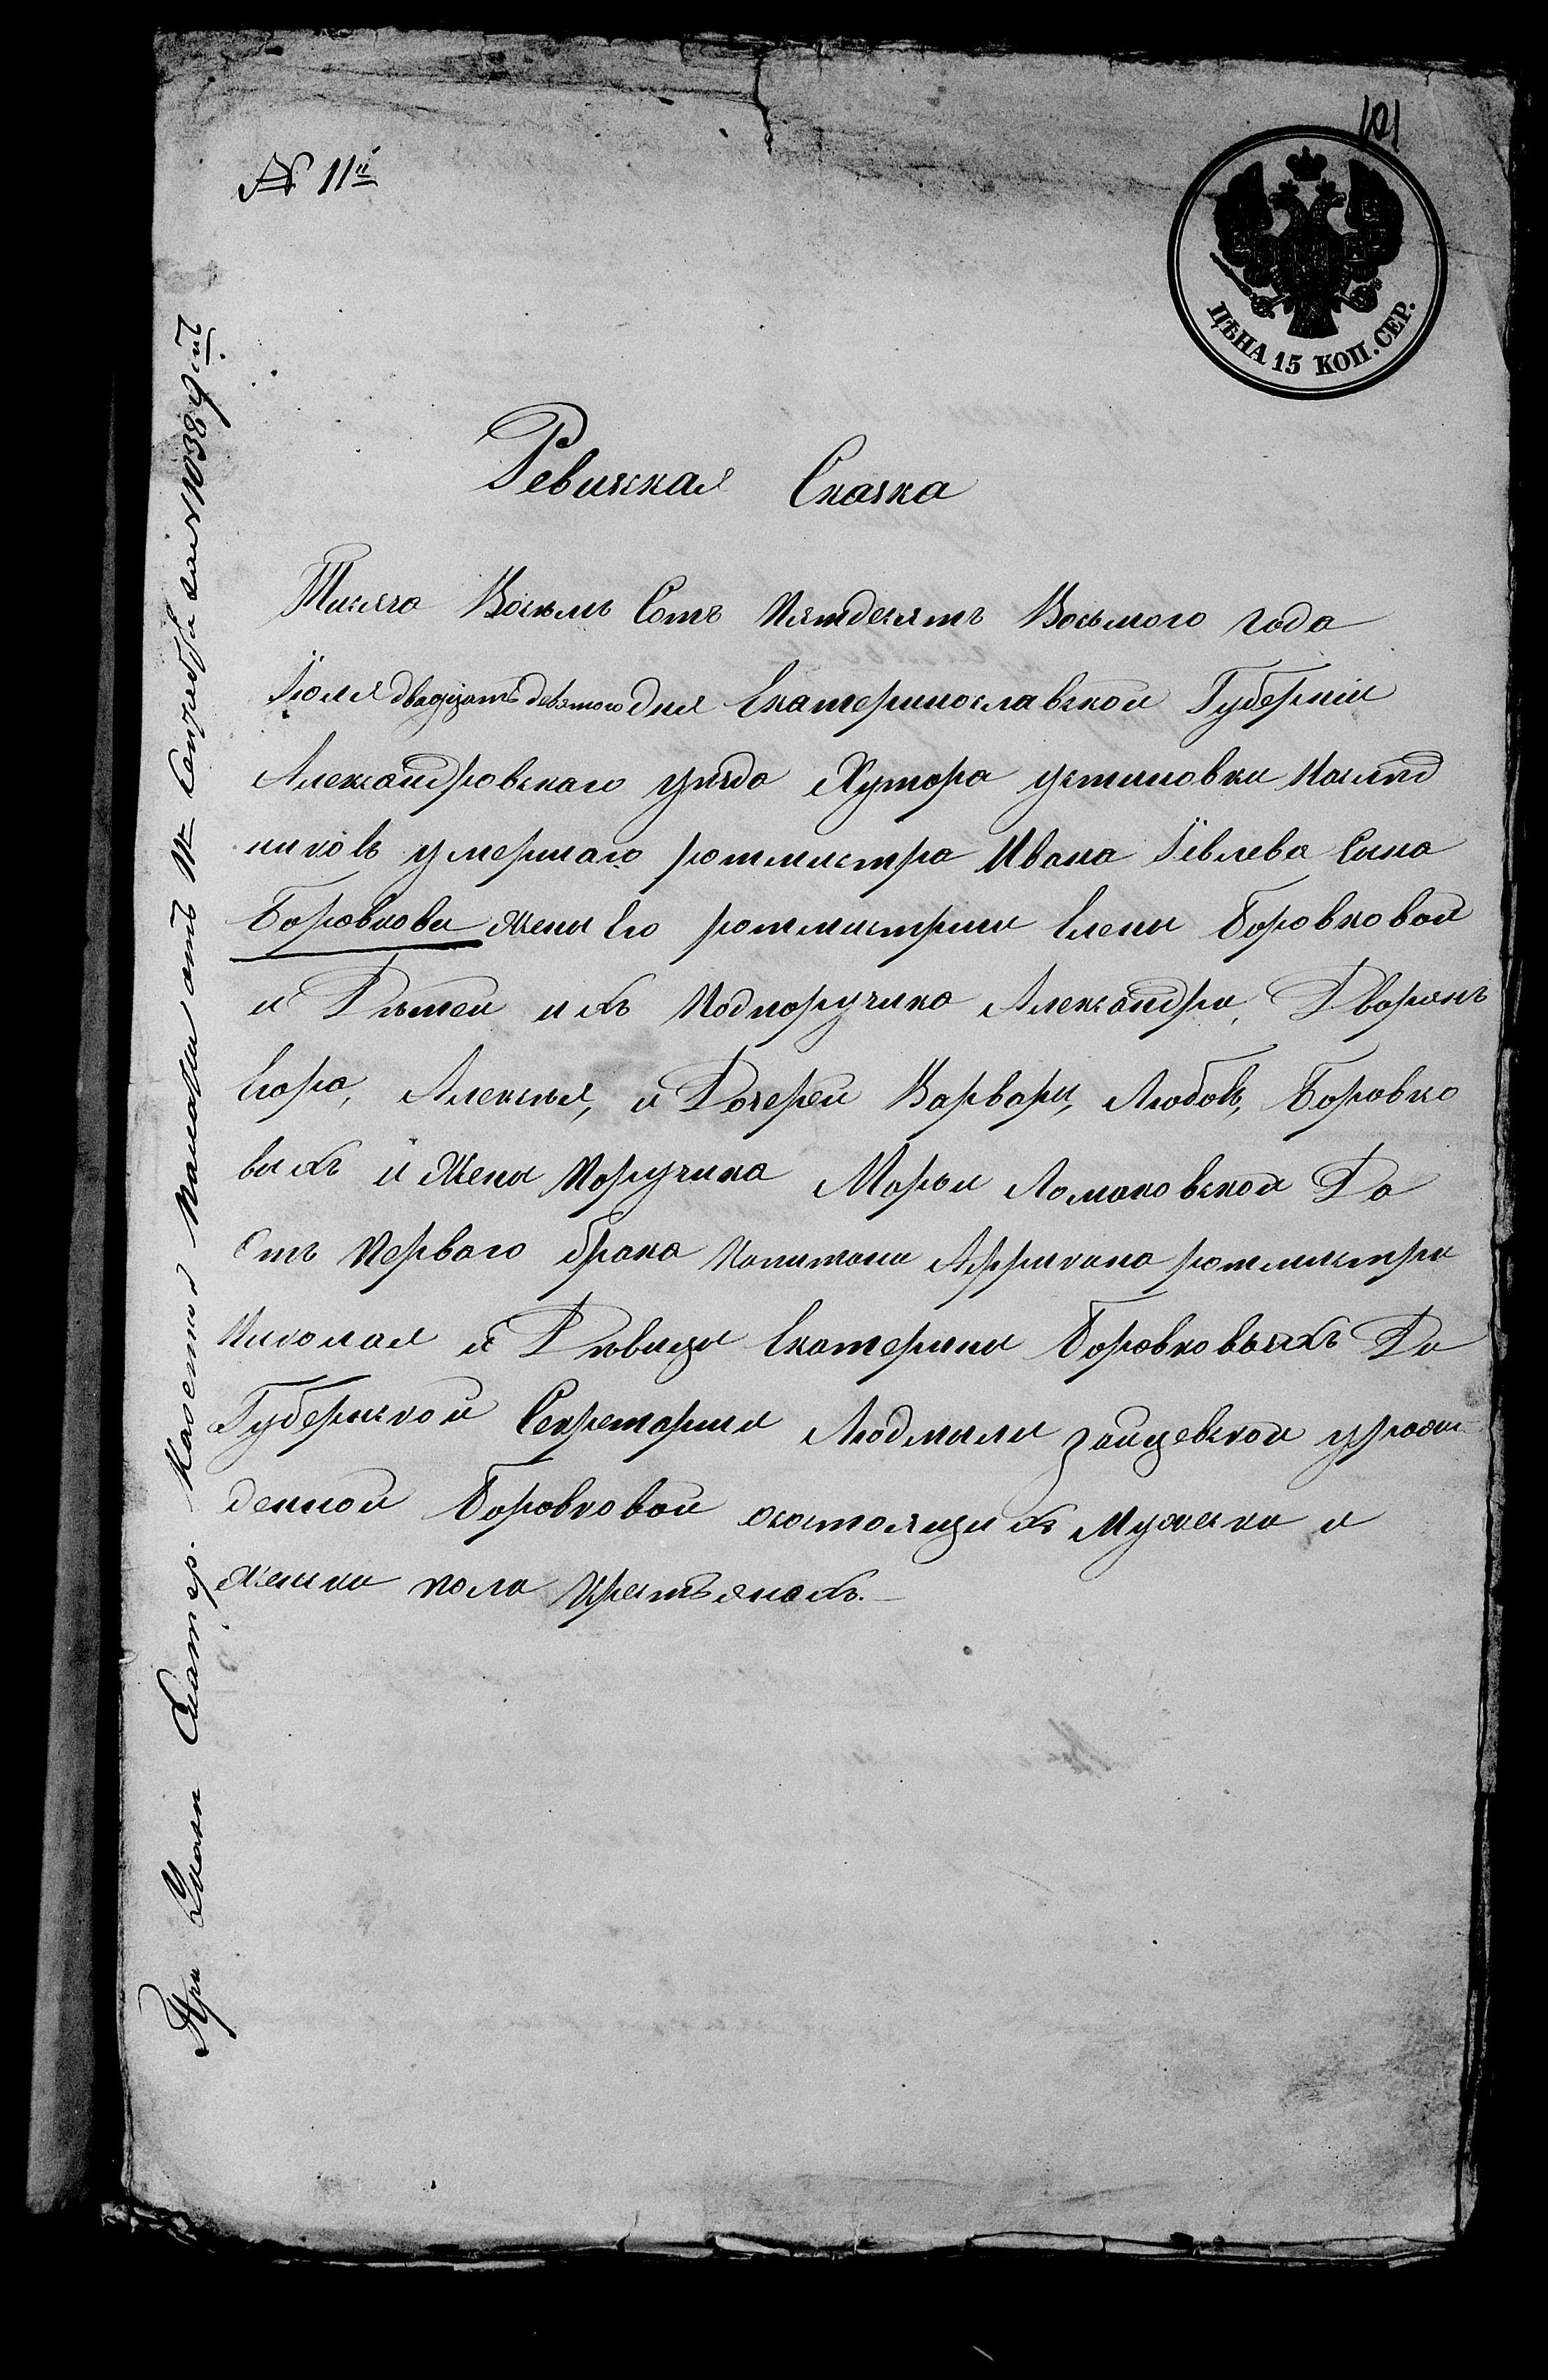 № 11й
101
ЦѢНА 15 КОП. СЕР.
Ревизская Сказка
Тысяча Восемь Сотъ Пятдесятъ Восьмого года
Іюля двадцать девятого дня Екатеринославской Губерніи
Александровскаго уѣзда Хутора устиновки Наслѣд
никовъ умершаго ротмистра Ивана Іевлева Сына
Боровкова Жены Его ротмистрши Елены Боровковой
и Дѣтей ихъ Подпоручика Александра, Дворянъ
Егора, Алексѣя, и Дочерей Варвары, Любовь, Боровко
выхъ и Жены Поручика Марьи Ломаковской Да
Отъ Перваго брака Капитана Аффрикана ротмистра
Николая и Дѣвицы Екатерины Боровковыхъ Да
Губернской Секретарши Людмилы Зайцевской урож
денной Боровковой о состоящихъ Мужска и
женска пола Крестьянахъ.
При Указѣ Екатер. Казенной Палаты отъ Сентября за № 10389